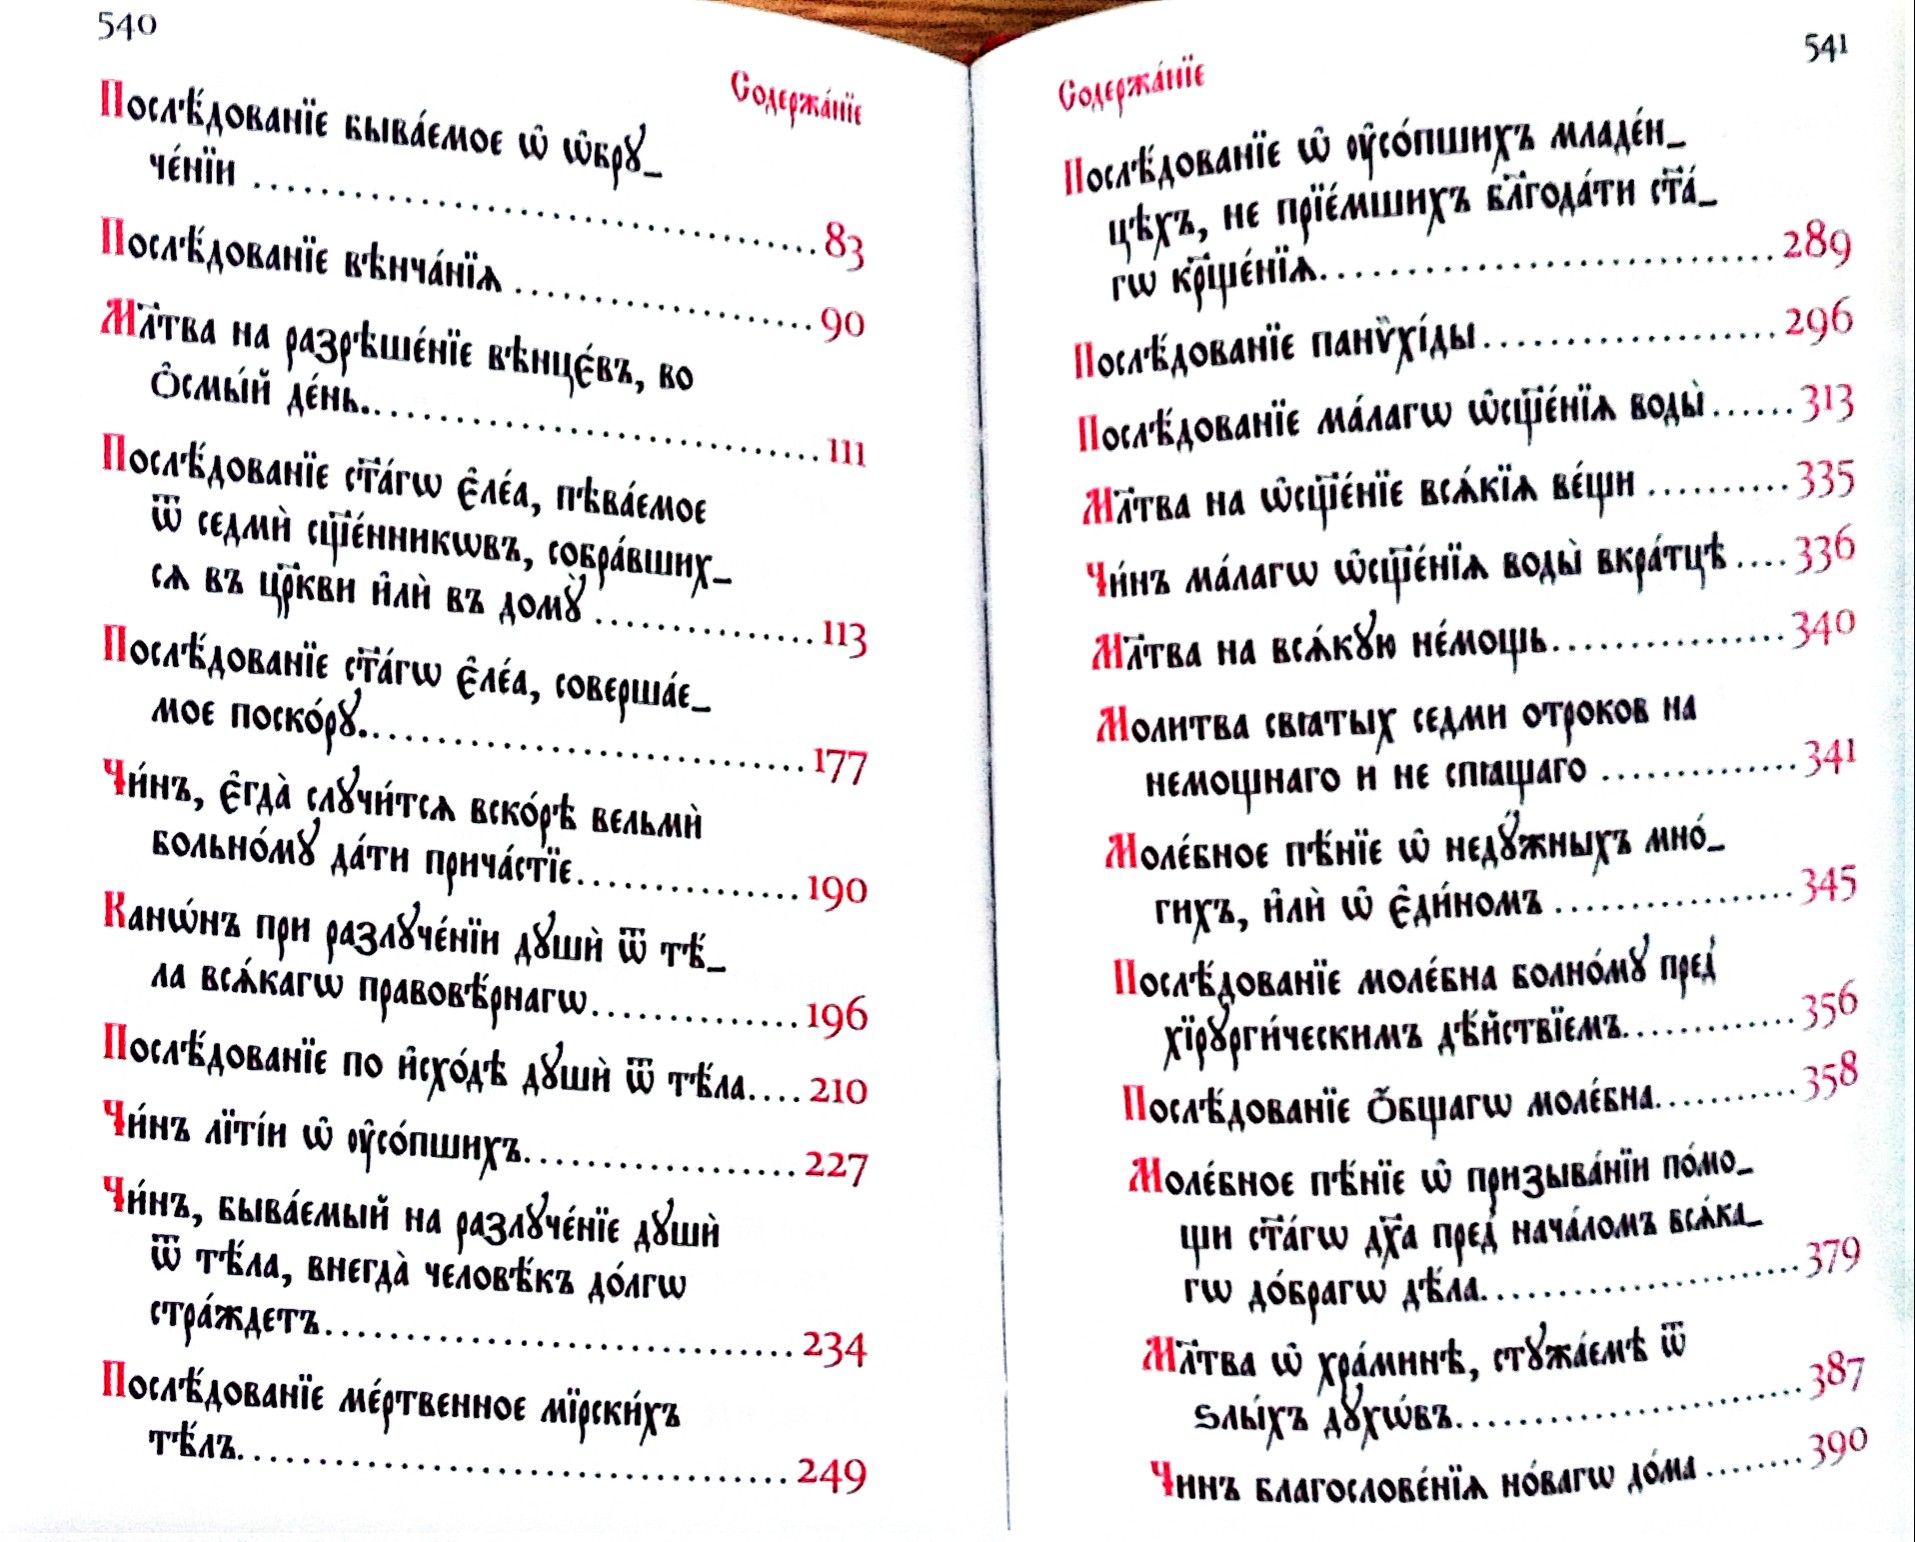 540
Содержа́нїе
Послѣ́дованїе быва́емое ѡ҆ ѡ҆брꙋ_
че́нїи ........ 83
Послѣ́дованїе вѣнча́нїѧ ........ 90
Мл҃тва на разрѣше́нїе вѣнцє́въ, во
ѻ҆смы́й де́нь ........ 111
Послѣ́дованїе ст҃а́гѡ є҆ле́а, пѣва́емое
ѿ седмѝ сщ҃е́нникѡвъ, собра́вших_
сѧ въ цр҃кви и҆лѝ въ домꙋ̀ ........ 113
Послѣ́дованїе ст҃а́гѡ є҆ле́а, соверша́е_
мое поско́рꙋ ........ 177
Чи́нъ, є҆гда̀ слꙋчи́тсѧ вско́рѣ вельмѝ
больно́мꙋ да́ти прича́стїе ........ 190
Канѡ́нъ при разлꙋче́нїи дꙋшѝ ѿ тѣ́_
ла всѧ́кагѡ правовѣ́рнагѡ ........ 196
Послѣ́дованїе по и҆схо́дѣ дꙋшѝ ѿ тѣ́ла .... 210
Чи́нъ лїті́и ѡ҆ ᲂу҆со́пшихъ ........ 227
Чи́нъ, быва́емый на разлꙋче́нїе дꙋшѝ
ѿ тѣ́ла, внегда̀ человѣ́къ до́лгѡ
стра́ждетъ ........ 234
Послѣ́дованїе ме́ртвенное мїрски́хъ
тѣ́лъ ........ 249
541
Содержа́нїе
Послѣ́дованїе ѡ҆ ᲂу҆со́пшихъ младе́н_
цѣхъ, не прїе́мшихъ бл҃года́ти ст҃а́_
гѡ кр҃ще́нїѧ ........ 289
Послѣ́дованїе панѷхі́ды ........ 296
Послѣ́дованїе ма́лагѡ ѡ҆сщ҃е́нїѧ воды̀ ...... 313
Мл҃тва на ѡ҆сщ҃е́нїе всѧ́кїѧ ве́щи ........ 335
Чи́нъ ма́лагѡ ѡ҆сщ҃е́нїѧ воды̀ вкра́тцѣ .... 336
Мл҃тва на всѧ́кꙋю не́мощь ........ 340
Молитва свꙗтых седми отроков на
немощнаго и не спꙗщаго ........ 341
Моле́бное пѣ́нїе ѡ҆ недꙋ́жныхъ мно́_
гихъ, и҆лѝ ѡ҆ є҆ди́номъ ........ 345
Послѣ́дованїе моле́бна болно́мꙋ пред̾
хїрꙋрги́ческимъ дѣ́йствїемъ ........ 356
Послѣ́дованїе ѻ҆́бщагѡ моле́бна ........ 358
Моле́бное пѣ́нїе ѡ҆ призыва́нїи по́мо_
щи ст҃а́гѡ дх҃а пред̾ нача́ломъ всѧ́ка_
гѡ до́брагѡ дѣ́ла ........ 379
Мл҃тва ѡ҆ хра́минѣ, стꙋжа́емѣ ѿ
ѕлы́хъ дꙋхѡ́въ ........ 387
Чинъ благослове́нїѧ но́вагѡ до́ма ........ 390